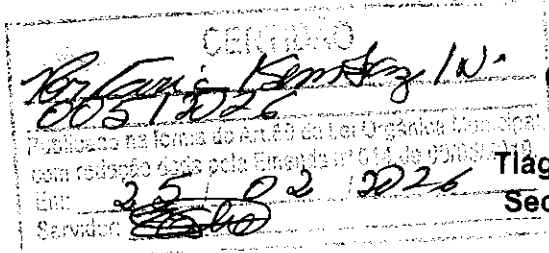 CERTIDÃO
Portaria Semsez / N.
005/2026
Publicado na forma do Art.89 da Lei Orgânica Municipal
com redação dada pela Emenda nº 014 de
Em: 25 / 02 / 2026
Servidor:
Tiag
Sec